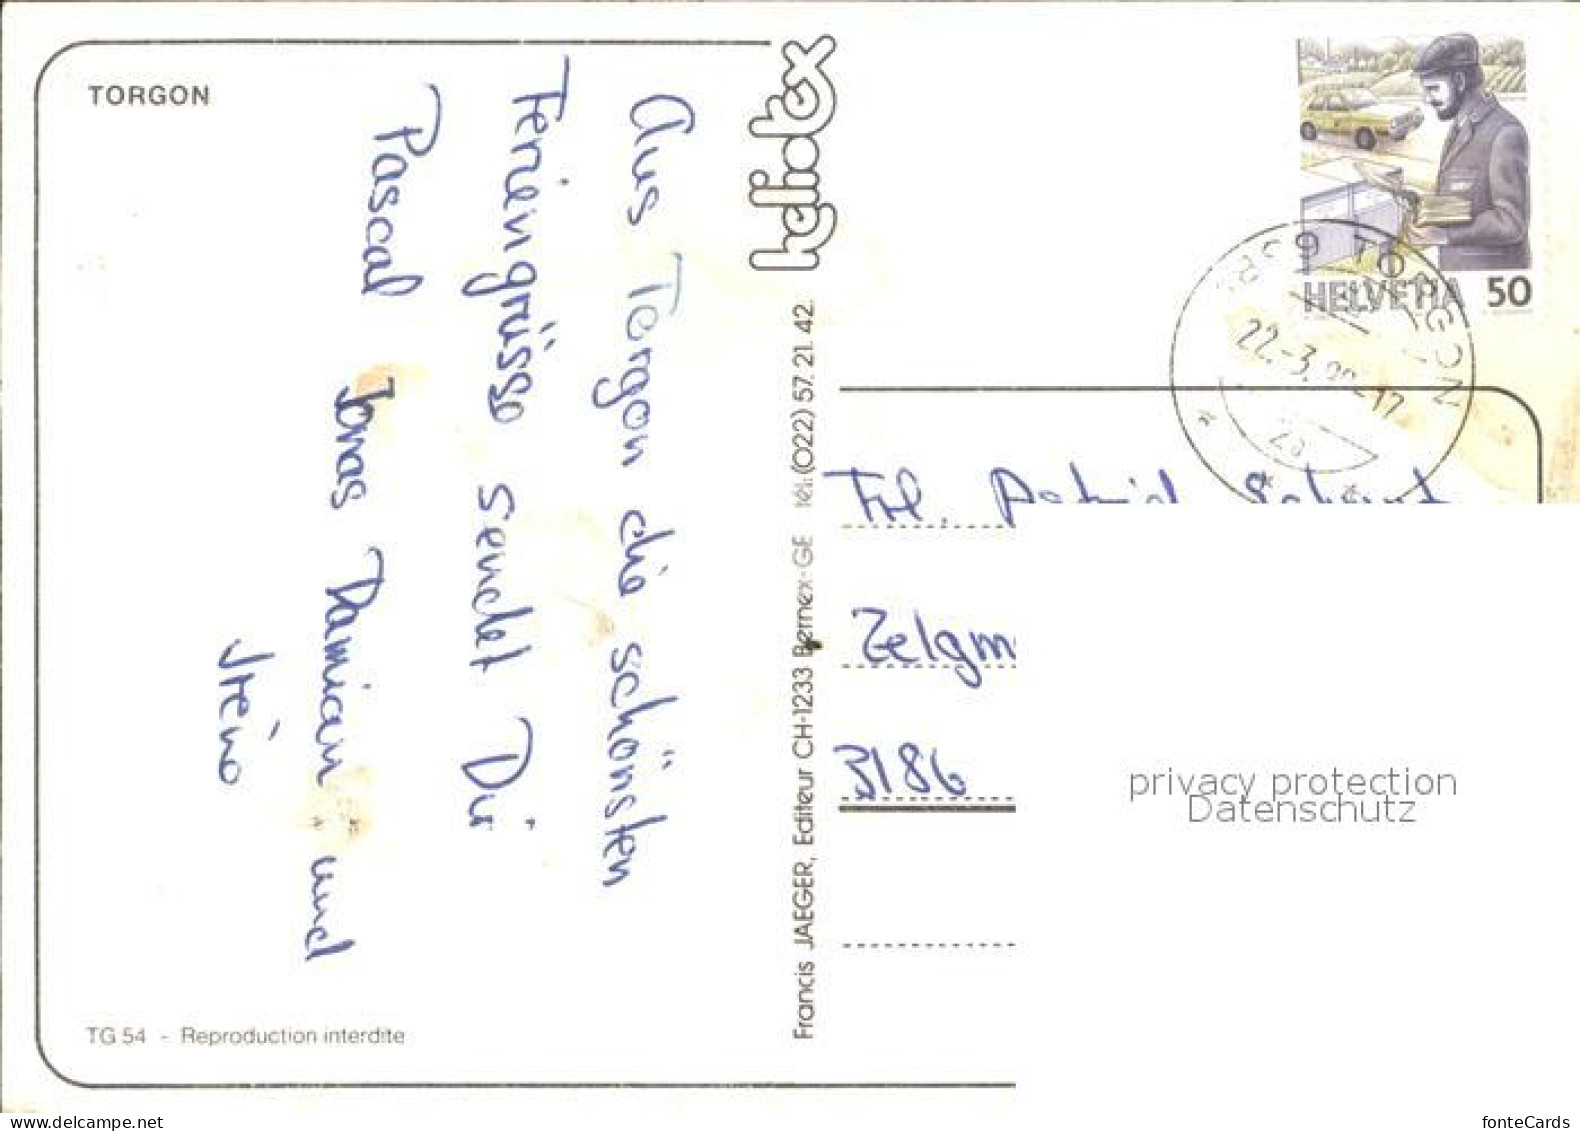 TORGON
Aus Torgon die schönsten
Feriengrüsse sendet Dir
Pascal Jonas Damian und
TG 54 - Reproduction interdite
heliotex
Francis JAEGER, Editeur CH-1233 Bernex-GE tél. (022) 57. 21. 42.
HELVETIA 50
TORGON
22.-3.
Frl.
Zelgm
3186
privacy protection
Datenschutz
www.delcampe.net
fonteCards